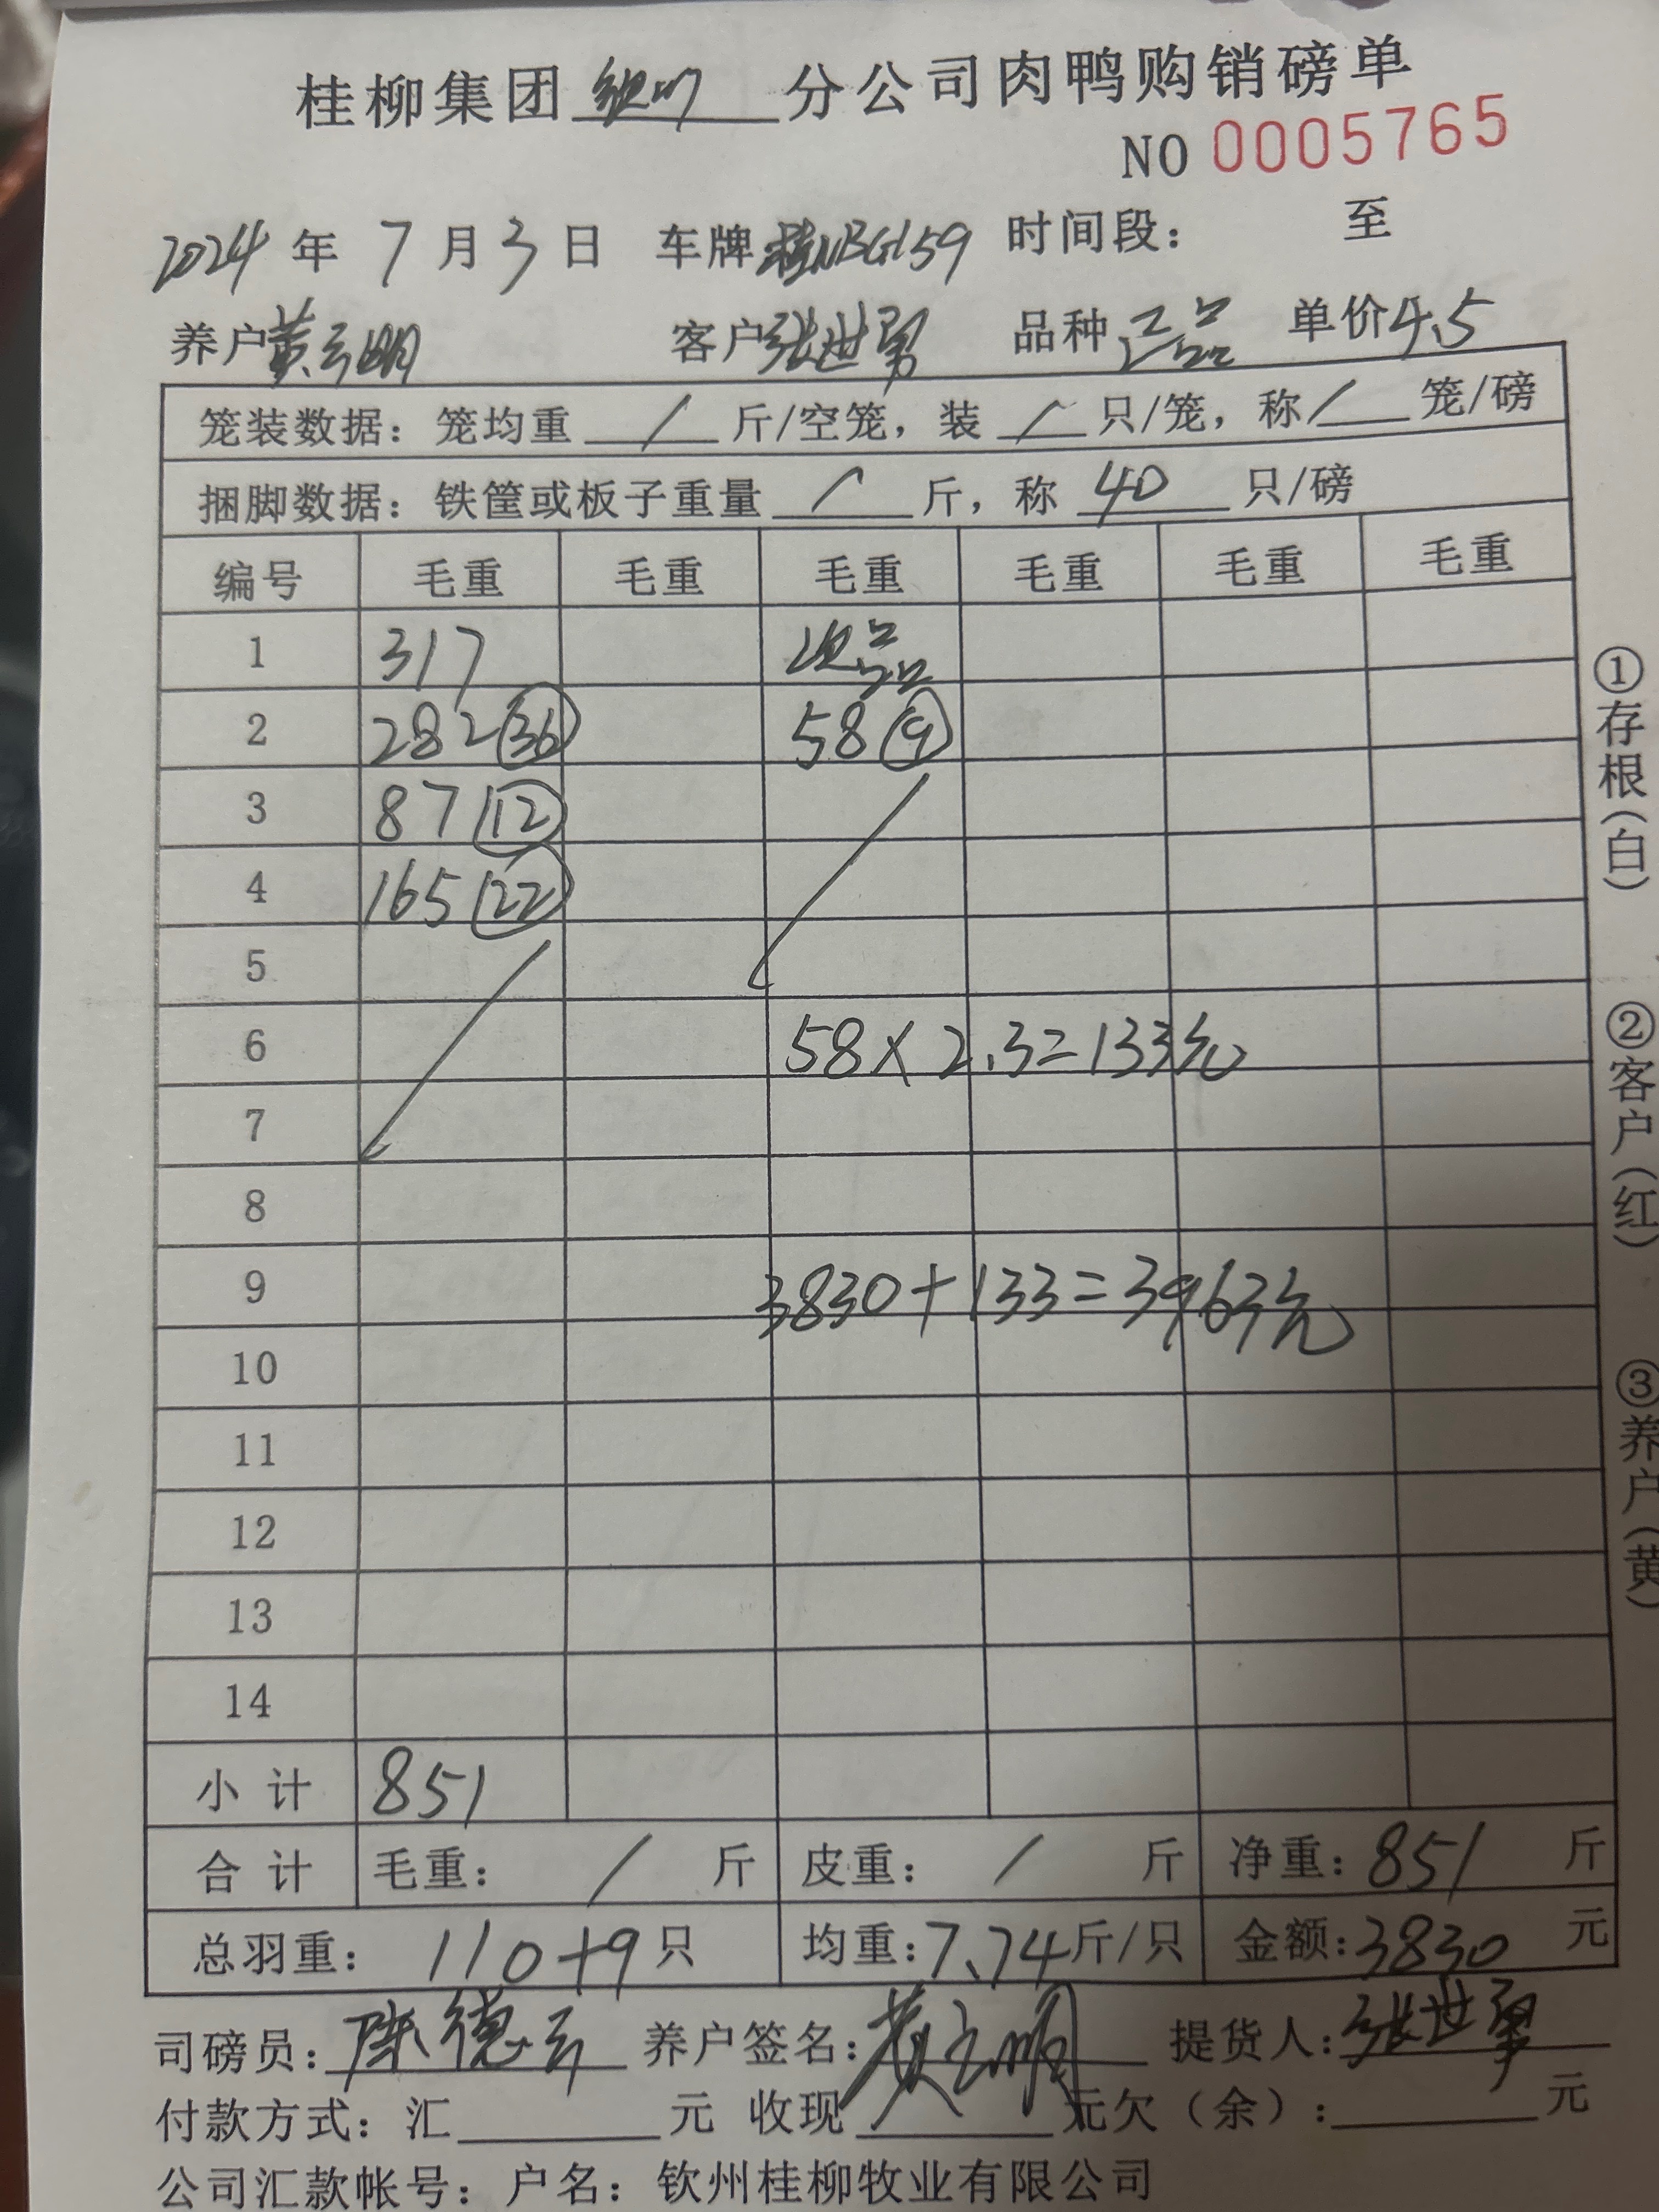 桂柳集团 钦州 分公司肉鸭购销磅单
NO 0005765
2024 年 7 月 3 日 车牌 桂NBG159 时间段： 至
养户 黄立明 客户 张世勇 品种 正品 单价 4.5
笼装数据：笼均重 / 斤/空笼，装 / 只/笼，称 / 笼/磅
捆脚数据：铁筐或板子重量 / 斤，称 40 只/磅
编号 毛重 毛重 毛重 毛重 毛重 毛重
1 317 次品
2 282 36 58 9
3 87 12
4 165 22
5
6 58×2.3=133元
7
8
9 3830+133=3963元
10
11
12
13
14
小计 851
合计 毛重： / 斤 皮重： / 斤 净重：851 斤
总羽重： 110+9 只 均重：7.74 斤/只 金额：3830 元
司磅员：陈德云 养户签名：黄立明 提货人：张世勇
付款方式：汇 元 收现 元欠（余）： 元
公司汇款帐号：户名：钦州桂柳牧业有限公司
①存根（白）
②客户（红）
③养户（黄）